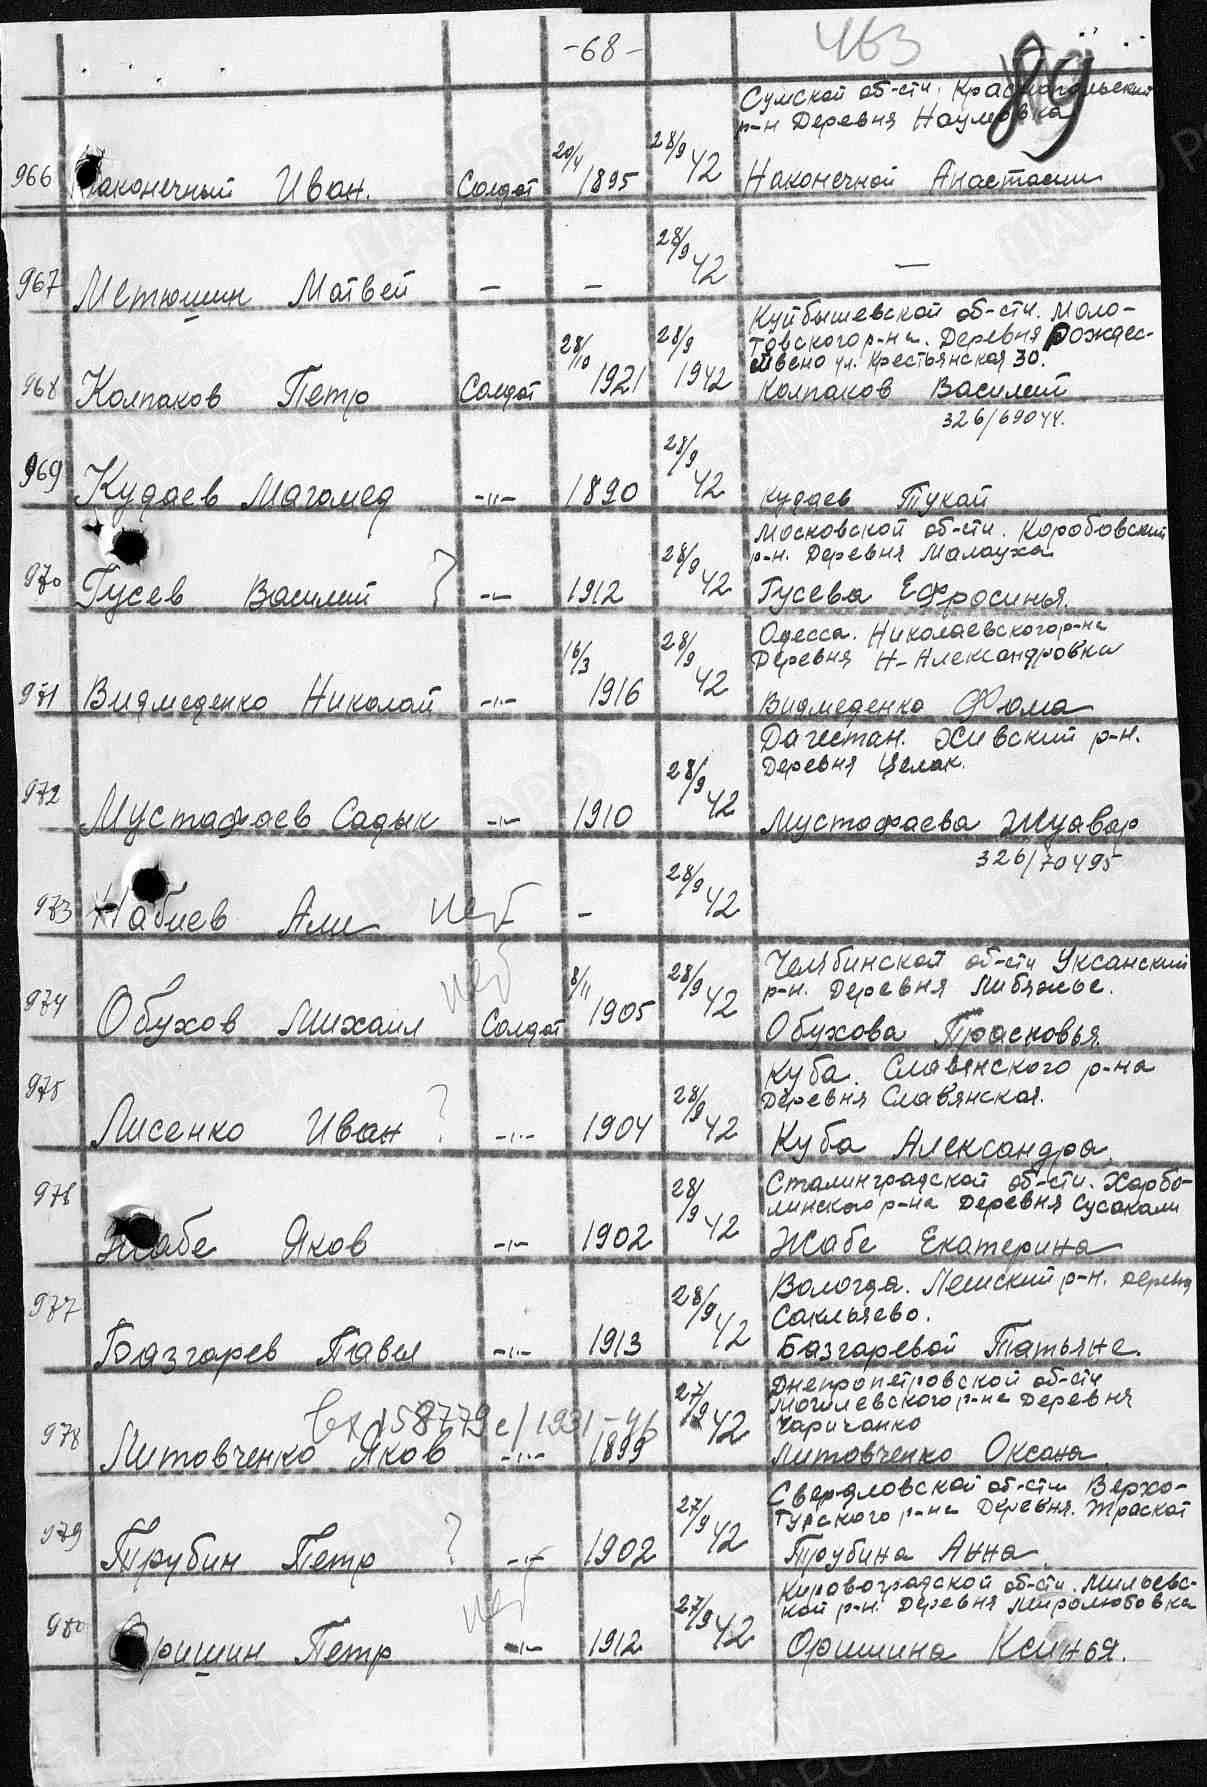 -68-
463
89
Сумской об-сти. Краснопольский
р-н Деревня Наумовка
966 Наконечный Иван. Солдат 20/4 1895 28/9 42 Наконечной Анастасии
967 Метюшин Матвей — — 28/9 42 —
Куйбышевской об-сти. Моло-
товского р-на. Деревня Рождес-
твено ул. Крестьянская 30.
968 Колпаков Петр Солдат 28/10 1921 28/9 1942 Колпаков Василий
326/69044.
969 Кудаев Магомед -"- 1890 28/9 42 Кудаев Тукай
Московской об-сти. Коробовский
р-н. Деревня Малауха
970 Гусев Василий ? -"- 1912 28/9 42 Гусева Ефросинья.
Одесса. Николаевского р-на
Деревня Н-Александровка
971 Видмеденко Николай -"- 16/3 1916 28/9 42 Видмеденко Фома
Дагестан. Хивский р-н.
Деревня Целак.
972 Мустафаев Садык -"- 1910 28/9 42 Мустафаева Жуавар
326/70495
973 Набиев Али нет - 28/9 42
Челябинской об-сти Уксанский
р-н. Деревня Либяжье.
974 Обухов Михаил нет Солдат 8/11 1905 28/9 42 Обухова Прасковья
Куба. Славянского р-на
Деревня Славянская.
975 Лисенко Иван ? -"- 1904 28/9 42 Куба Александра.
Сталинградской об-сти. Харбо-
линского р-на Деревня Сусакали
976 Жабе Яков -"- 1902 28/9 42 Жабе Екатерина
Вологда. Лешский р-н. деревня
Сакльяево.
977 Базгарев Павел -"- 1913 28/9 42 Базгаревой Татьяне.
Днепропетровской об-сти
Могилевского р-на Деревня
Чаричанко
вх 158779с/1931-
978 Литовченко Яков -"- 1899 27/9 42 Литовченко Оксана.
Свердловской об-сти Верхо-
турского р-на Деревня. Траскот
979 Трубин Петр ? -"- 1902 27/9 42 Трубина Анна.
Кировоградской об-сти. Мильевс-
кой р-н. Деревня Миролюбовка
980 Оришин Петр нет -"- 1912 27/9 42 Оришина Ксинья.